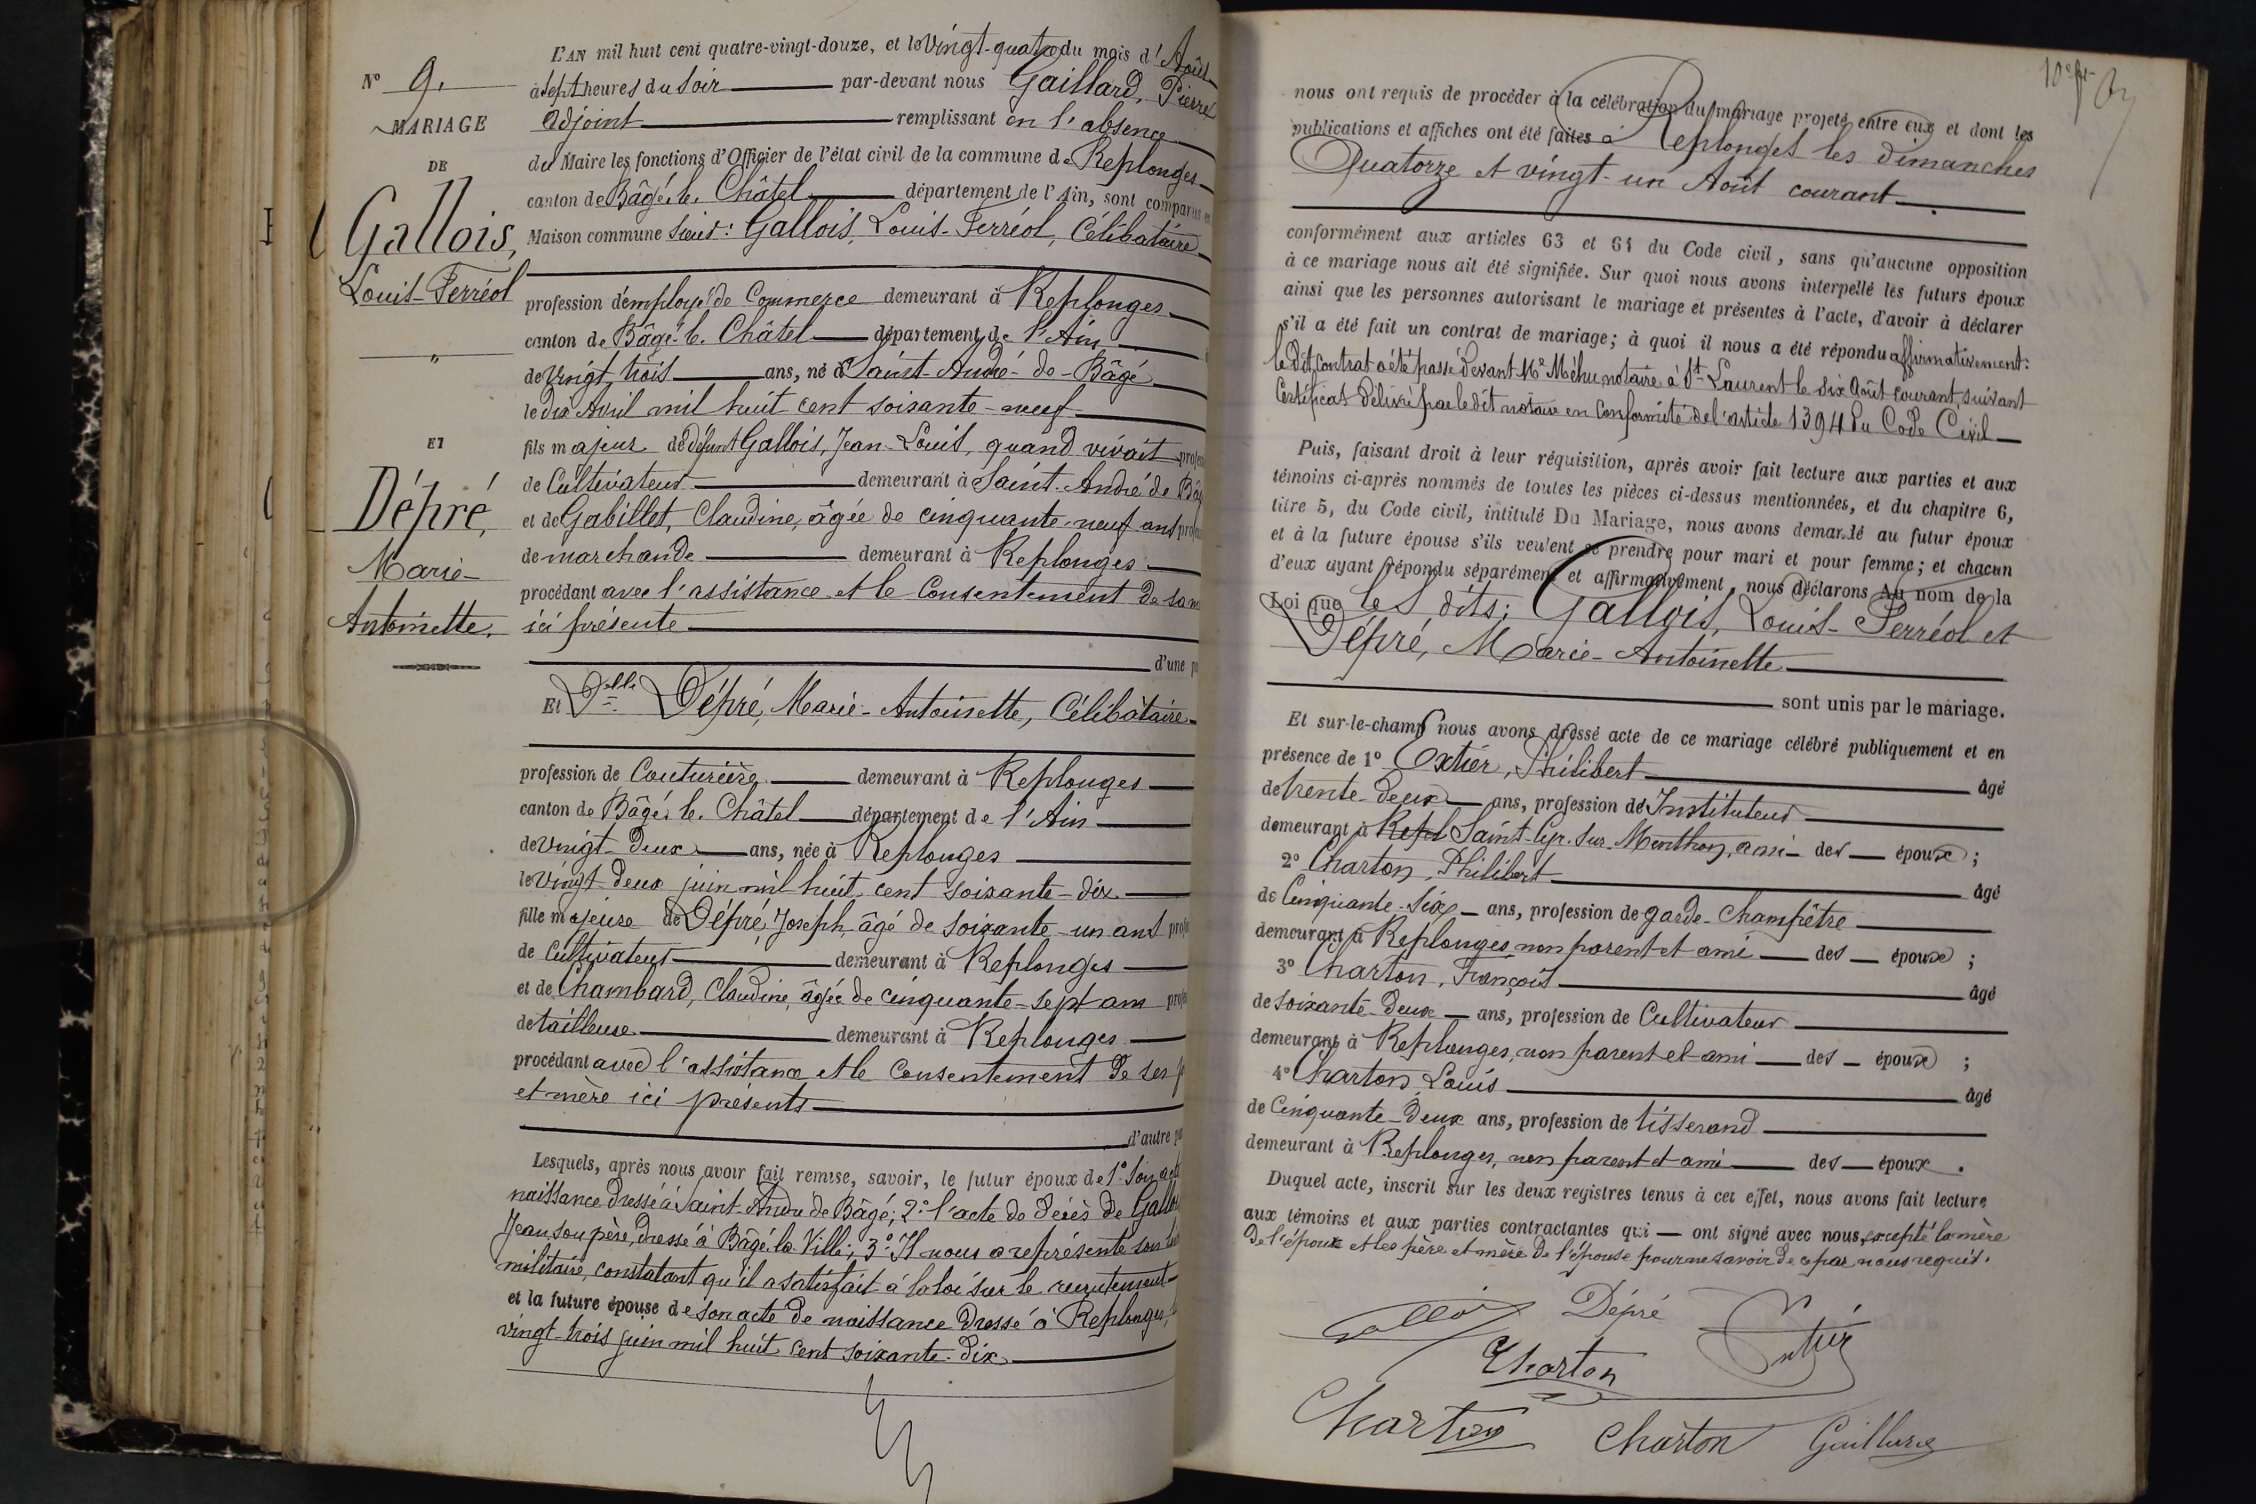 N° 9.
MARIAGE
DE
Gallois,
Louis-Ferréol
"
ET
Dépré,
Marie-
Antoinette.
L'AN mil huit cent quatre-vingt-douze, et le vingt-quatre du mois d'Août
à sept heures du soir par-devant nous Gaillard, Pierre
adjoint remplissant en l'absence
du Maire les fonctions d'Officier de l'état civil de la commune de Replonges
canton de Bâgé-le-Châtel département de l'Ain, sont comparus en
Maison commune sieur: Gallois, Louis-Ferréol, Célibataire
profession d'employé de Commerce demeurant à Replonges
canton de Bâgé-le-Châtel département de l'Ain
de vingt trois ans, né à Saint-André-de-Bâgé
le dix Avril mil huit cent soixante-neuf
fils majeur de défunt Gallois, Jean-Louis, quand vivait profess
de Cultivateur demeurant à Saint-André de Bâg
et de Gabillet, Claudine, âgée de cinquante-neuf ans profess
de marchande demeurant à Replonges
procédant avec l'assistance et le Consentement de sa m
ici présente
d'une pa
Et Delle Dépré, Marie-Antoinette, Célibataire
profession de Couturière demeurant à Replonges
canton de Bâgé-le-Châtel département de l'Ain
de vingt-deux ans, née à Replonges
le vingt-deux juin mil huit cent soixante-dix
fille majeure de Dépré, Joseph, âgé de soixante-un ans profe
de Cultivateur demeurant à Replonges
et de Chambard, Claudine, âgée de cinquante-sept ans profe
de tailleuse demeurant à Replonges
procédant avec l'assistance et le Consentement de ses p
et mère ici présents
d'autre pa
Lesquels, après nous avoir fait remise, savoir, le futur époux de 1° Son acte
naissance dressé à Saint-André de Bâgé; 2° l'acte de décès de Gallo
Jean son père, dressé à Bâgé-la-Ville; 3° Il nous a représenté son
militaire, constatant qu'il a satisfait à la loi sur le recrutement
et la future épouse de son acte de naissance dressé à Replonges, le
vingt-trois juin mil huit cent soixante-dix
10e ft
nous ont requis de procéder à la célébration du mariage projeté entre eux et dont les
publications et affiches ont été faites à Replonges les dimanches
Quatorze et vingt-un Août courant
conformément aux articles 63 et 64 du Code civil, sans qu'aucune opposition
à ce mariage nous ait été signifiée. Sur quoi nous avons interpellé les futurs époux
ainsi que les personnes autorisant le mariage et présentes à l'acte, d'avoir à déclarer
s'il a été fait un contrat de mariage; à quoi il nous a été répondu affirmativement:
le dit Contrat a été passé devant Me Méhu notaire à St Laurent le dix Août courant, suivant
Certificat délivré par le dit notaire en conformité de l'article 1394 du Code Civil
Puis, faisant droit à leur réquisition, après avoir fait lecture aux parties et aux
témoins ci-après nommés de toutes les pièces ci-dessus mentionnées, et du chapitre 6,
titre 5, du Code civil, intitulé Du Mariage, nous avons demandé au futur époux
et à la future épouse s'ils veulent se prendre pour mari et pour femme; et chacun
d'eux ayant répondu séparément et affirmativement, nous déclarons Au nom de la
Loi que les dits: Gallois, Louis-Ferréol et
Dépré, Marie-Antoinette
sont unis par le mariage.
Et sur-le-champ nous avons dressé acte de ce mariage célébré publiquement et en
présence de 1° Extier, Philibert âgé
de trente-deux ans, profession de Instituteur
demeurant à Repl Saint-Cyr-sur-Menthon, ami des époux;
2° Charton, Philibert âgé
de Cinquante-six ans, profession de garde-Champêtre
demeurant à Replonges non parent et ami des époux;
3° Charton, François âgé
de soixante-deux ans, profession de Cultivateur
demeurant à Replonges, non parent et ami des époux;
4° Charton, Louis âgé
de Cinquante-deux ans, profession de tisserand
demeurant à Replonges, non parent et ami des époux.
Duquel acte, inscrit sur les deux registres tenus à cet effet, nous avons fait lecture
aux témoins et aux parties contractantes qui ont signé avec nous, excepté la mère
de l'époux et les père et mère de l'épouse pour ne savoir de ce par nous requis.
Gallois Dépré Extier
Charton
Charton Charton Gaillard